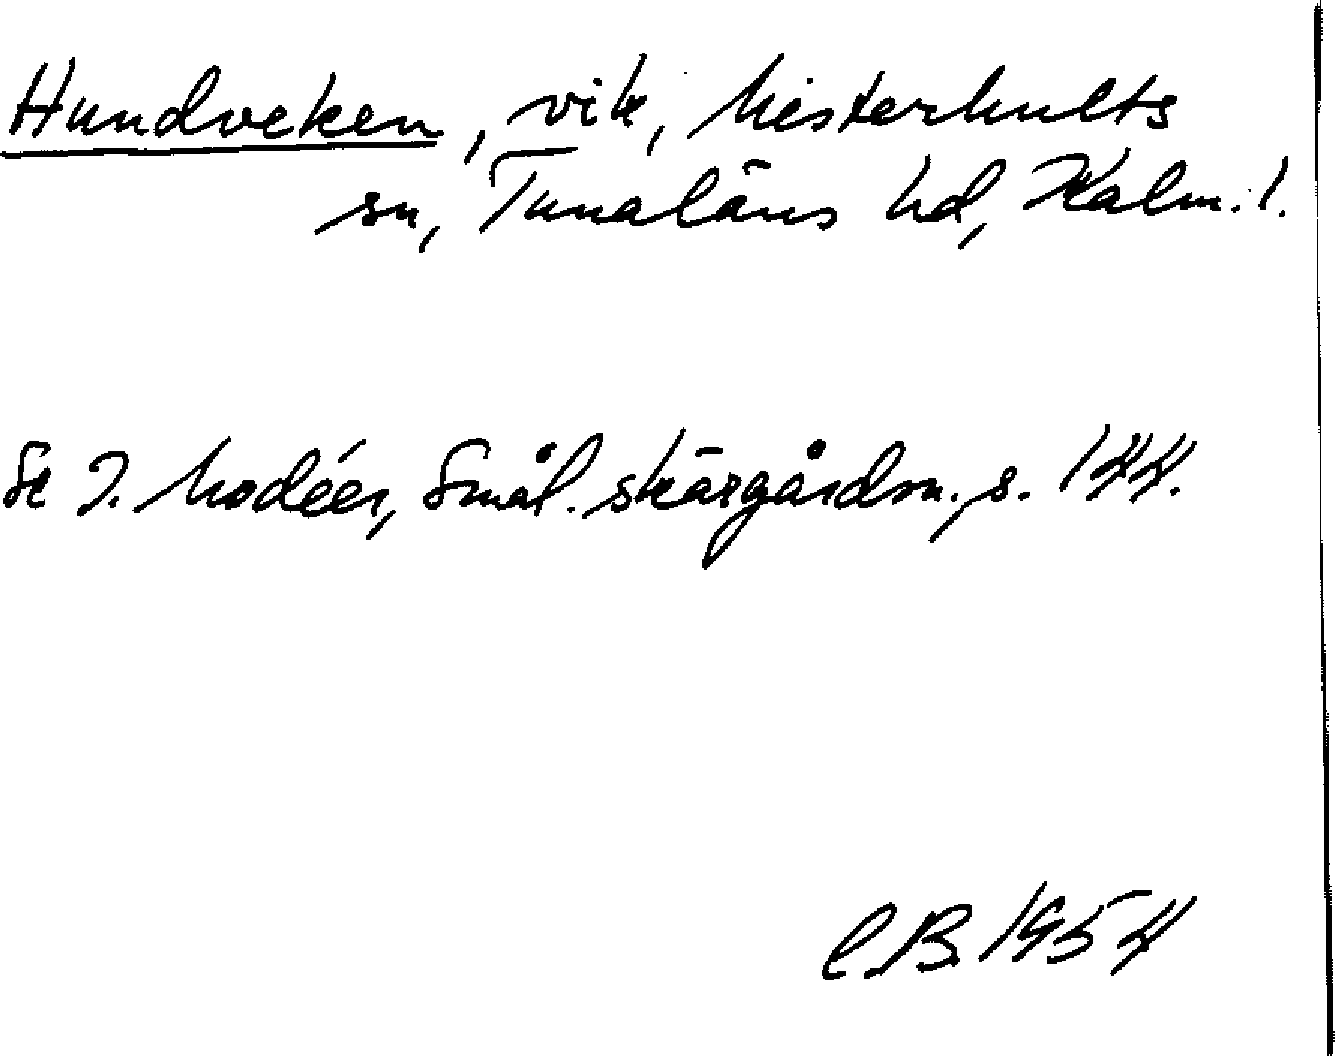 Hundveken, vik, Misterhults
sn, Tunaläns hd, Kalm. l.
Se I. Modéer, Smål. skärgårdsn., s. 144.
C.B. 1954